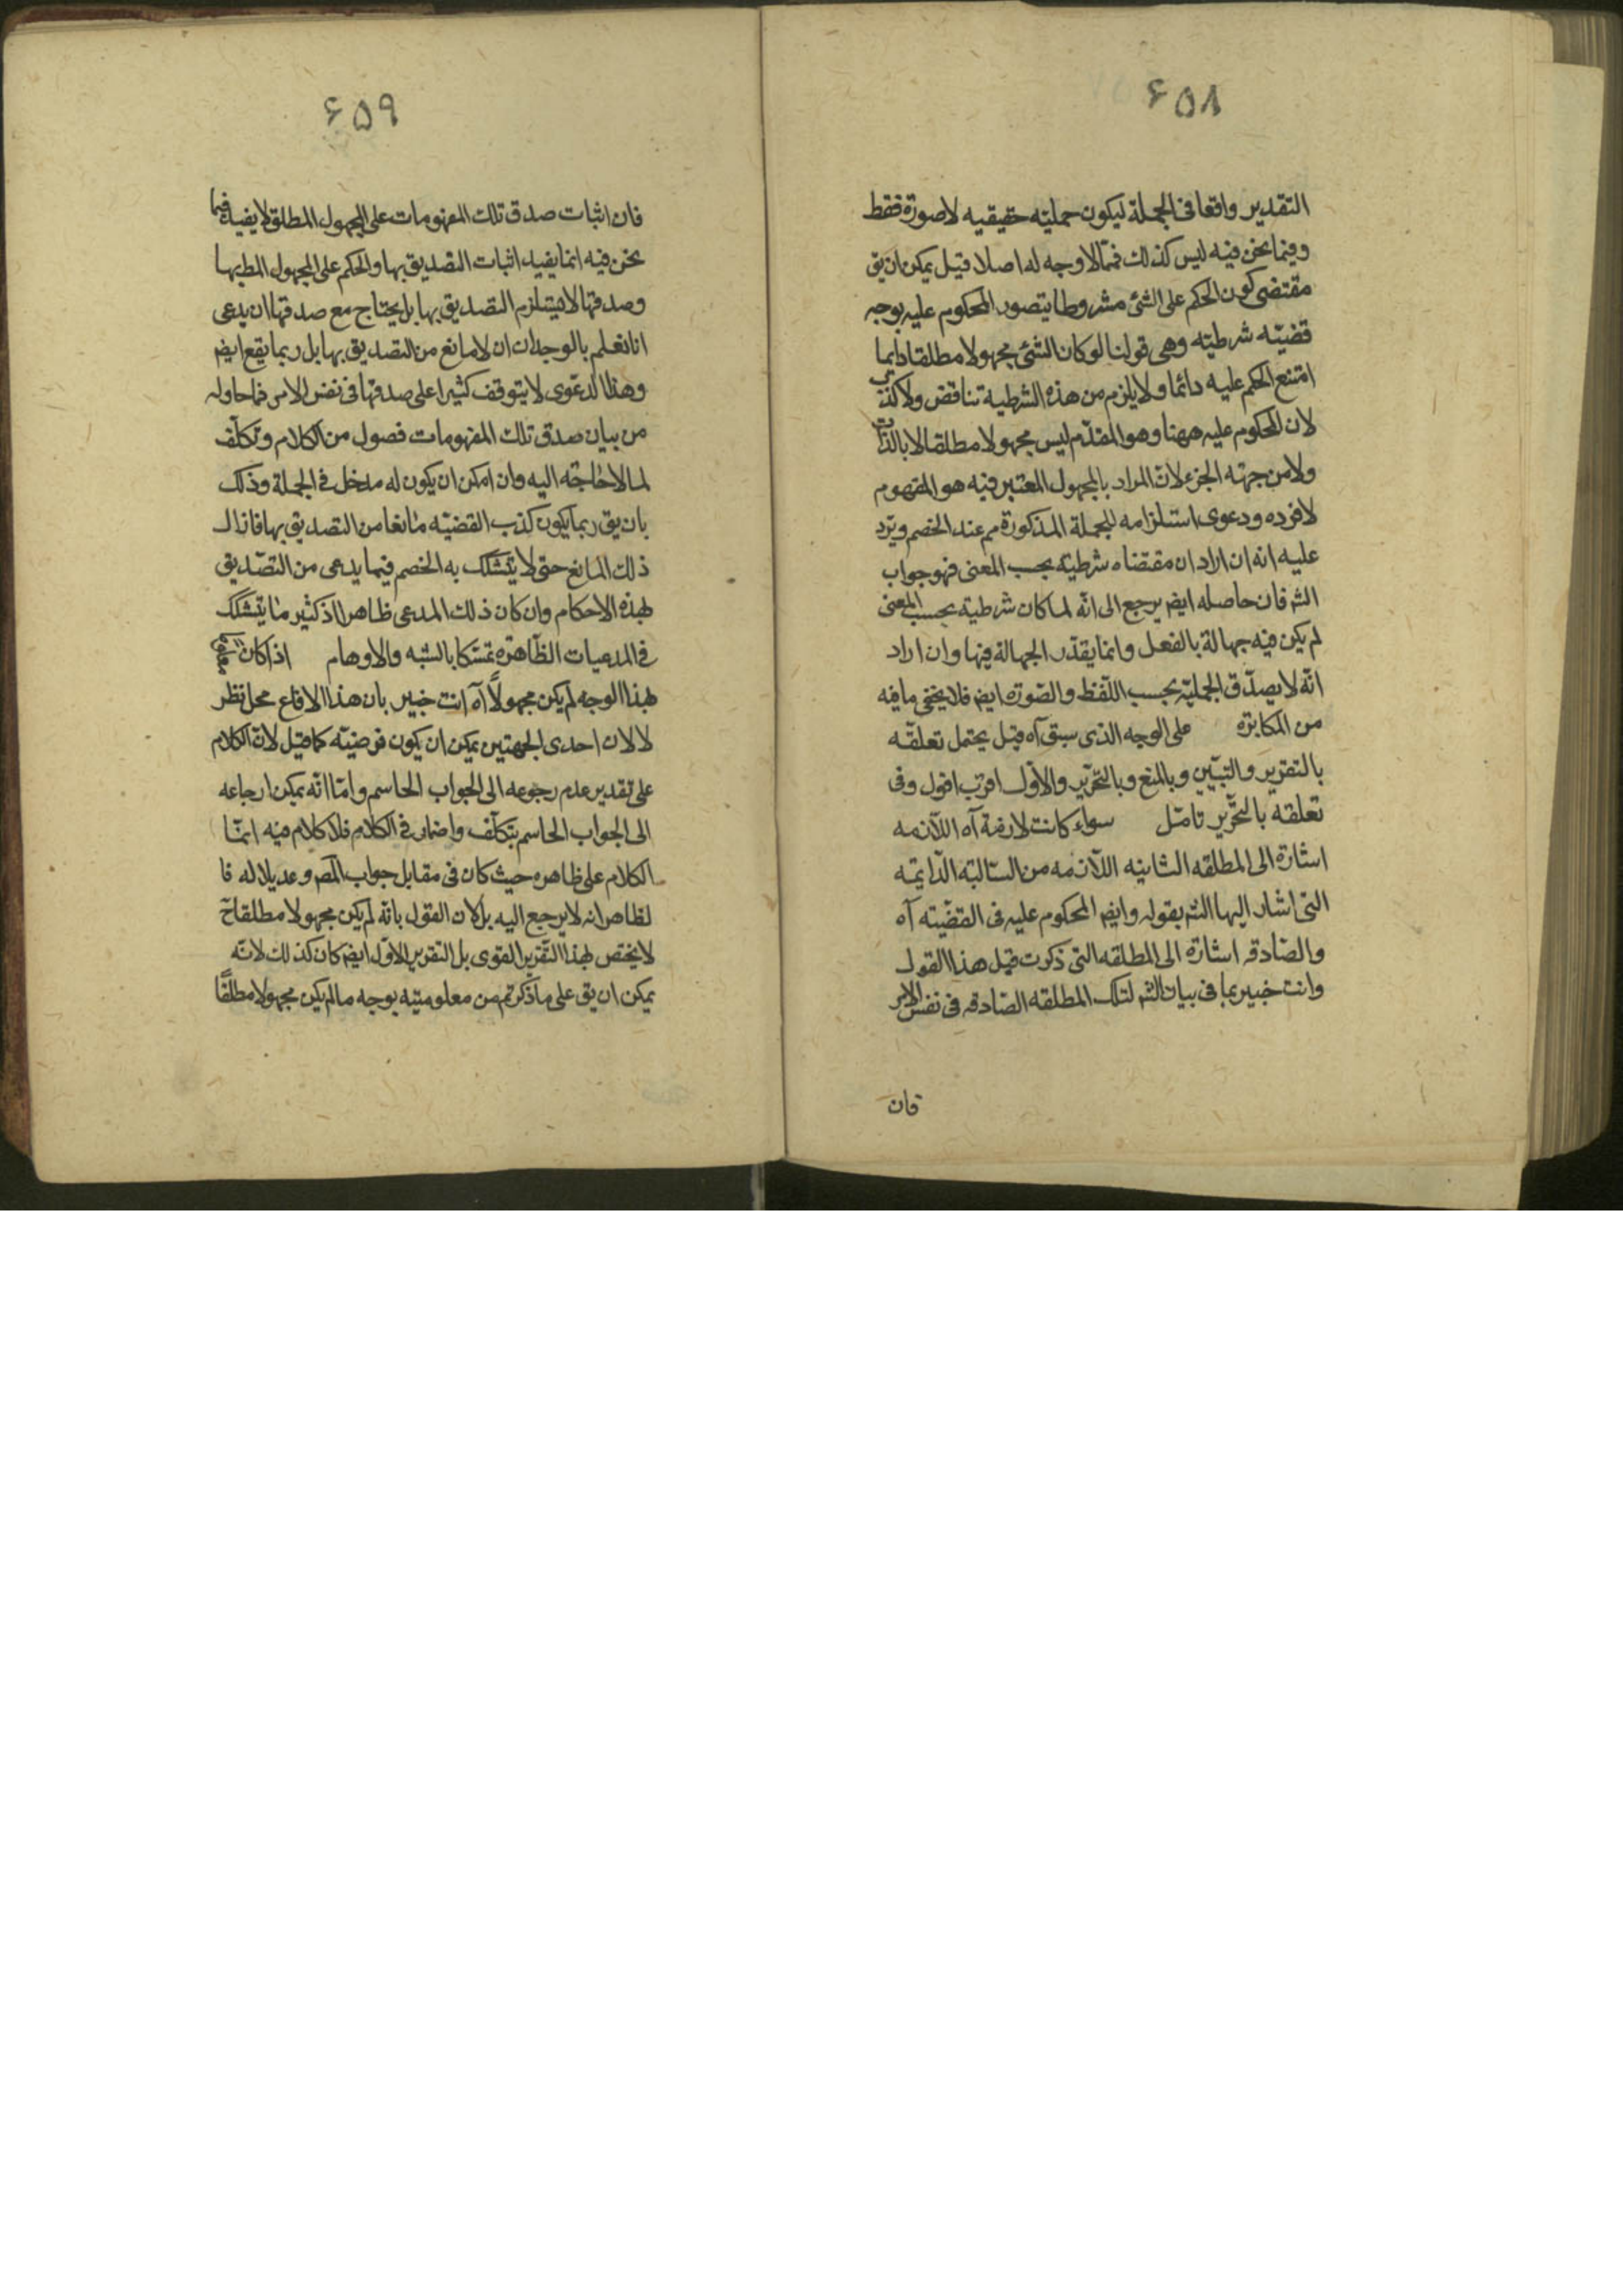 ۶۵۸
التقدير واقعا فى الجملة ليكون حمليته حقيقيه لا صورة فقط
وفيما نحن فيه ليس كذلك فمّا لا وجه له اصلا قيل يمكن ان يق
مقتضى كون الحكم على الشئ مشروطا بتصور المحكوم عليه بوجه
قضيّه شرطيّه وهى قولنا لو كان الشئ مجهولا مطلقا دايما
امتنع الحكم عليه دائما ولا يلزم من هذه الشرطية تناقض ولا كذب
لان المحكوم عليه ههنا وهو المقدّم ليس مجهولا مطلقا لا بالذات
ولا من جهته الجزء لانّ المراد بالمجهول المعتبر فيه هو المفهوم
لا فرده ودعوى استلزامه للجملة المذكورة مم عند الخصم ويرد
عليه انه ان اراد ان مقتضاه شرطية بحسب المعنى فهو جواب
الشم فان حاصله ايضم يرجع الى انّه لما كان شرطية بحسب المعنى
لم يكن فيه جهالة بالفعل وانما يقدّر الجهالة فيها وان اراد
انّه لا يصدّق الحمليّه بحسب اللّفظ والصّوره ايضم فلا يخفى ما فيه
من المكابرة على الوجه الذى سبق آه قيل يحتمل تعلقّه
بالتقرير والتبيّين وبالمنع وبالتحرّير والاوّل اقرب اقول وفى
تعلقه بالتحّرير تامّل سواء كانت لازمة آه اللّازمه
اشارة الى المطلقه الثانيه اللّازمه من السّالبته الدّايمه
التى اشار اليها الشم بقوله وايضم المحكوم عليه فى القضيّته آه
والصّادقه اشارة الى المطلقه التى ذكرت قبل هذا القول
وانت خبير بما فى بيان الشم لتلك المطلقه الصّادقه فى نفس الامر
فان
۶۵۹
فان اثبات صدق تلك المفهومات على المجهول المطلق لا يفيد فيما
نحن فيه انما يفيد اثبات التّصديق بها والحكم على المجهول المط بها
وصدقها لا يستلزم التصديق بها بل يحتاج مع صدقها ان يدعى
انا نعلم بالوجدان ان لا مانع من التصديق بها بل ربما يقع ايضم
وهذا الدعوى لا يتوقف كثيرا على صدقها فى نفس الامر فما حاوله
من بيان صدق تلك المفهومات فصول من الكلام وتكلّف
لما لا حاجته اليه وان امكن ان يكون له مدخل فى الجملة وذلك
بان يق ربما يكون كذب القضيّه مانعا من التصديق بها فازال
ذلك المانع حتى لا يتشكّك به الخصم فيما يدعى من التّصديق
بهذه الاحكام وان كان ذلك المدعى ظاهرا اذ كثير ما يتشكّك
فى المدعيات الظاهرة تمسّكا بالشبه والاوهام اذا كان
بهذا الوجه لم يكن مجهولًا آه انت خبير بان هذا الاقناع محل نظر
لا لان احدى الجهتين يمكن ان يكون فرضيّه كما قيل لانّ الكلام
على تقدير عدم رجوعه الى الجواب الحاسم وامّا انّه يمكن ارجاعه
الى الجواب الحاسم بتكلّف واضمار فى الكلام فلا كلام فيه انمّا
الكلام على ظاهره حيث كان فى مقابل جواب المصم وعديلا له فا
لظاهر انه لا يرجع اليه بل كان القول بانّه لم يكن مجهولا مطلقا ح
لا يختص بهذا التّقرير القوى بل التقرير الاوّل ايضم كان كذلك لانّه
يمكن ان يق على ما ذكرتم من معلوميّته بوجه ما لم يكن مجهولا مطلقًا